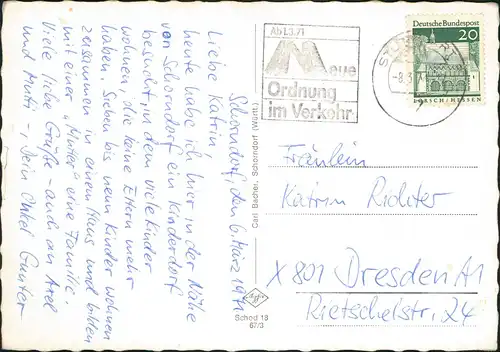 Schorndorf, den 6. März 1971
Liebe Katrin
heute habe ich hier in der Nähe
von Schorndorf ein Kinderdorf
besucht, in dem viele Kinder
wohnen, die keine Eltern mehr
haben. Sieben bis neun Kinder wohnen
zusammen in einem Haus und bilden
mit einer „Mutter" eine Familie.
Viele liebe Grüße - auch an Axel
und Mutti -, Dein Onkel Gunter
Carl Bacher, Schorndorf (Württ.)
Agfa
Schod 18
67/3
Ab 1.3.71
Neue
Ordnung
im Verkehr
Deutsche Bundespost
20
LORSCH/HESSEN
Fräulein
Katrin Richter
X 801 Dresden A1
Rietschelstr. 24